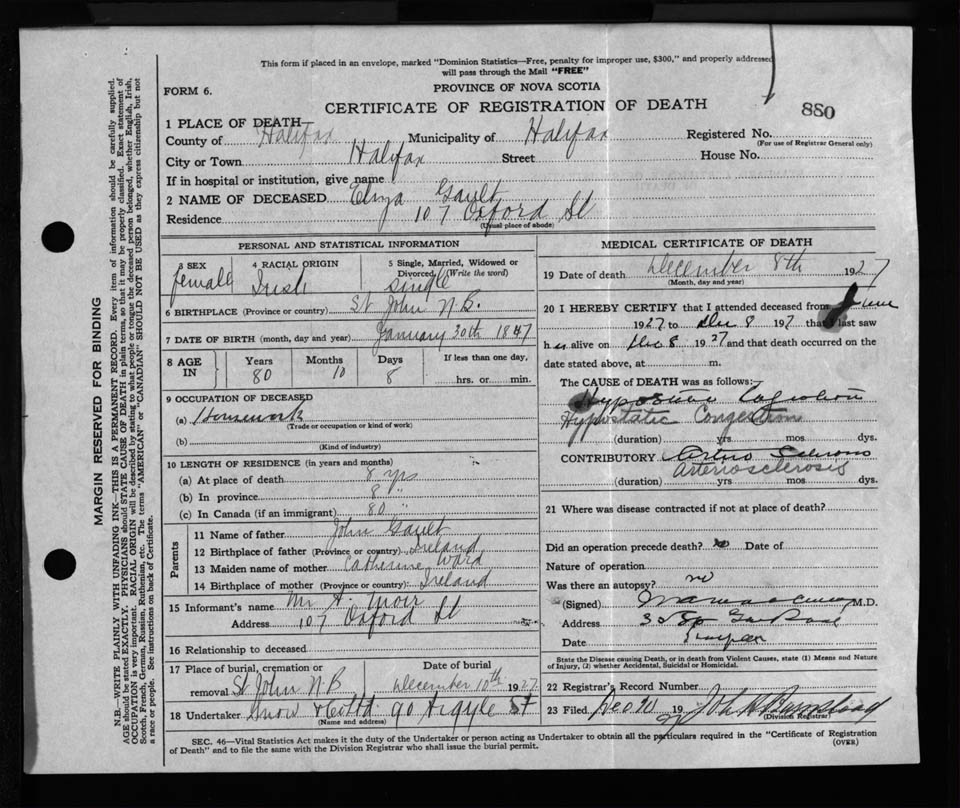 This form if placed in an envelope, marked "Dominion Statistics—Free, penalty for improper use, $300," and properly addressed
will pass through the Mail "FREE"
FORM 6.
PROVINCE OF NOVA SCOTIA
CERTIFICATE OF REGISTRATION OF DEATH
880
1 PLACE OF DEATH—
County of Halifax Municipality of Halifax Registered No.
(For use of Registrar General only)
City or Town Halifax Street House No.
If in hospital or institution, give name
2 NAME OF DECEASED Eliza Gault
Residence 107 Oxford St
(Usual place of abode)
PERSONAL AND STATISTICAL INFORMATION
3 SEX female
4 RACIAL ORIGIN Irish
5 Single, Married, Widowed or Divorced (Write the word) Single
6 BIRTHPLACE (Province or country) St John N.B.
7 DATE OF BIRTH (month, day and year) January 30th 1847
8 AGE IN Years 80 Months 10 Days 8 If less than one day, hrs. or min.
9 OCCUPATION OF DECEASED
(a) Housework
(Trade or occupation or kind of work)
(b)
(Kind of industry)
10 LENGTH OF RESIDENCE (in years and months)
(a) At place of death 8 yrs
(b) In province 8 "
(c) In Canada (if an immigrant) 80 "
Parents
11 Name of father John Gault
12 Birthplace of father (Province or country) Ireland
13 Maiden name of mother Catherine Ward
14 Birthplace of mother (Province or country) Ireland
15 Informant's name Mr A. Muir
Address 107 Oxford St
16 Relationship to deceased
17 Place of burial, cremation or removal St John N B Date of burial December 10th 1927
18 Undertaker Snow & Co Ltd 90 Argyle St
(Name and address)
MEDICAL CERTIFICATE OF DEATH
19 Date of death December 8th 1927
(Month, day and year)
20 I HEREBY CERTIFY that I attended deceased from June
1927 to Dec 8 1927 that I last saw
h er alive on Dec 8 1927 and that death occurred on the
date stated above, at m.
The CAUSE of DEATH was as follows:
Hypostatic Congestion
Hypostatic Congestion
(duration) yrs mos dys.
CONTRIBUTORY Arterio Sclerosis
Arteriosclerosis
(duration) yrs mos dys.
21 Where was disease contracted if not at place of death?
Did an operation precede death? no Date of
Nature of operation
Was there an autopsy? no
(Signed) M.D.
Address
Date
State the Disease causing Death, or in death from Violent Causes, state (1) Means and Nature
of Injury, (2) whether Accidental, Suicidal or Homicidal.
22 Registrar's Record Number
23 Filed Dec 9th 1927 John A
(Division Registrar)
SEC. 46—Vital Statistics Act makes it the duty of the Undertaker or person acting as Undertaker to obtain all the particulars required in the "Certificate of Registration
of Death" and to file the same with the Division Registrar who shall issue the burial permit.
(OVER)
MARGIN RESERVED FOR BINDING
N.B.—WRITE PLAINLY WITH UNFADING INK—THIS IS A PERMANENT RECORD. Every item of information should be carefully supplied.
AGE should be stated EXACTLY. PHYSICIANS should STATE CAUSE OF DEATH in plain terms, so that it may be properly classified. Exact statement of
OCCUPATION is very important. RACIAL ORIGIN will be described by stating to what people or tongue the deceased person belonged, whether English, Irish,
Scotch, French, German, Russian, Ruthenian, etc. The terms "AMERICAN" or "CANADIAN" SHOULD NOT BE USED as they express citizenship but not
a race or people. See instructions on back of Certificate.